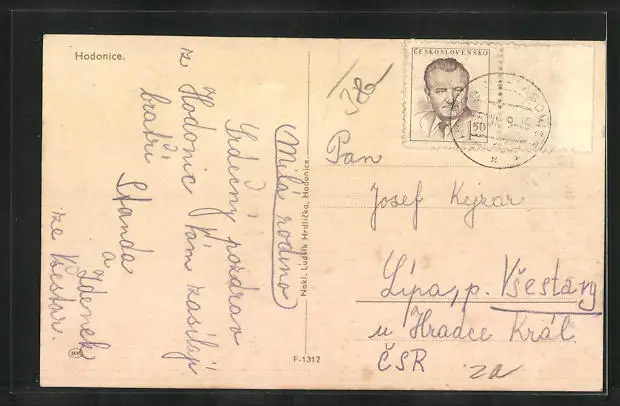 Hodonice.
Milá rodino
Srdečný pozdrav
ze Hodonic Vám zasílají
bratři
Standa
a
Zdenek
ze Všestar.
Nakl. Ludvík Hrdlička, Hodonice.
F-1312
ČESKOSLOVENSKO
1.50
Pan
Josef Kejzar
Lípa, p. Všestary
u Hradce Král.
ČSR